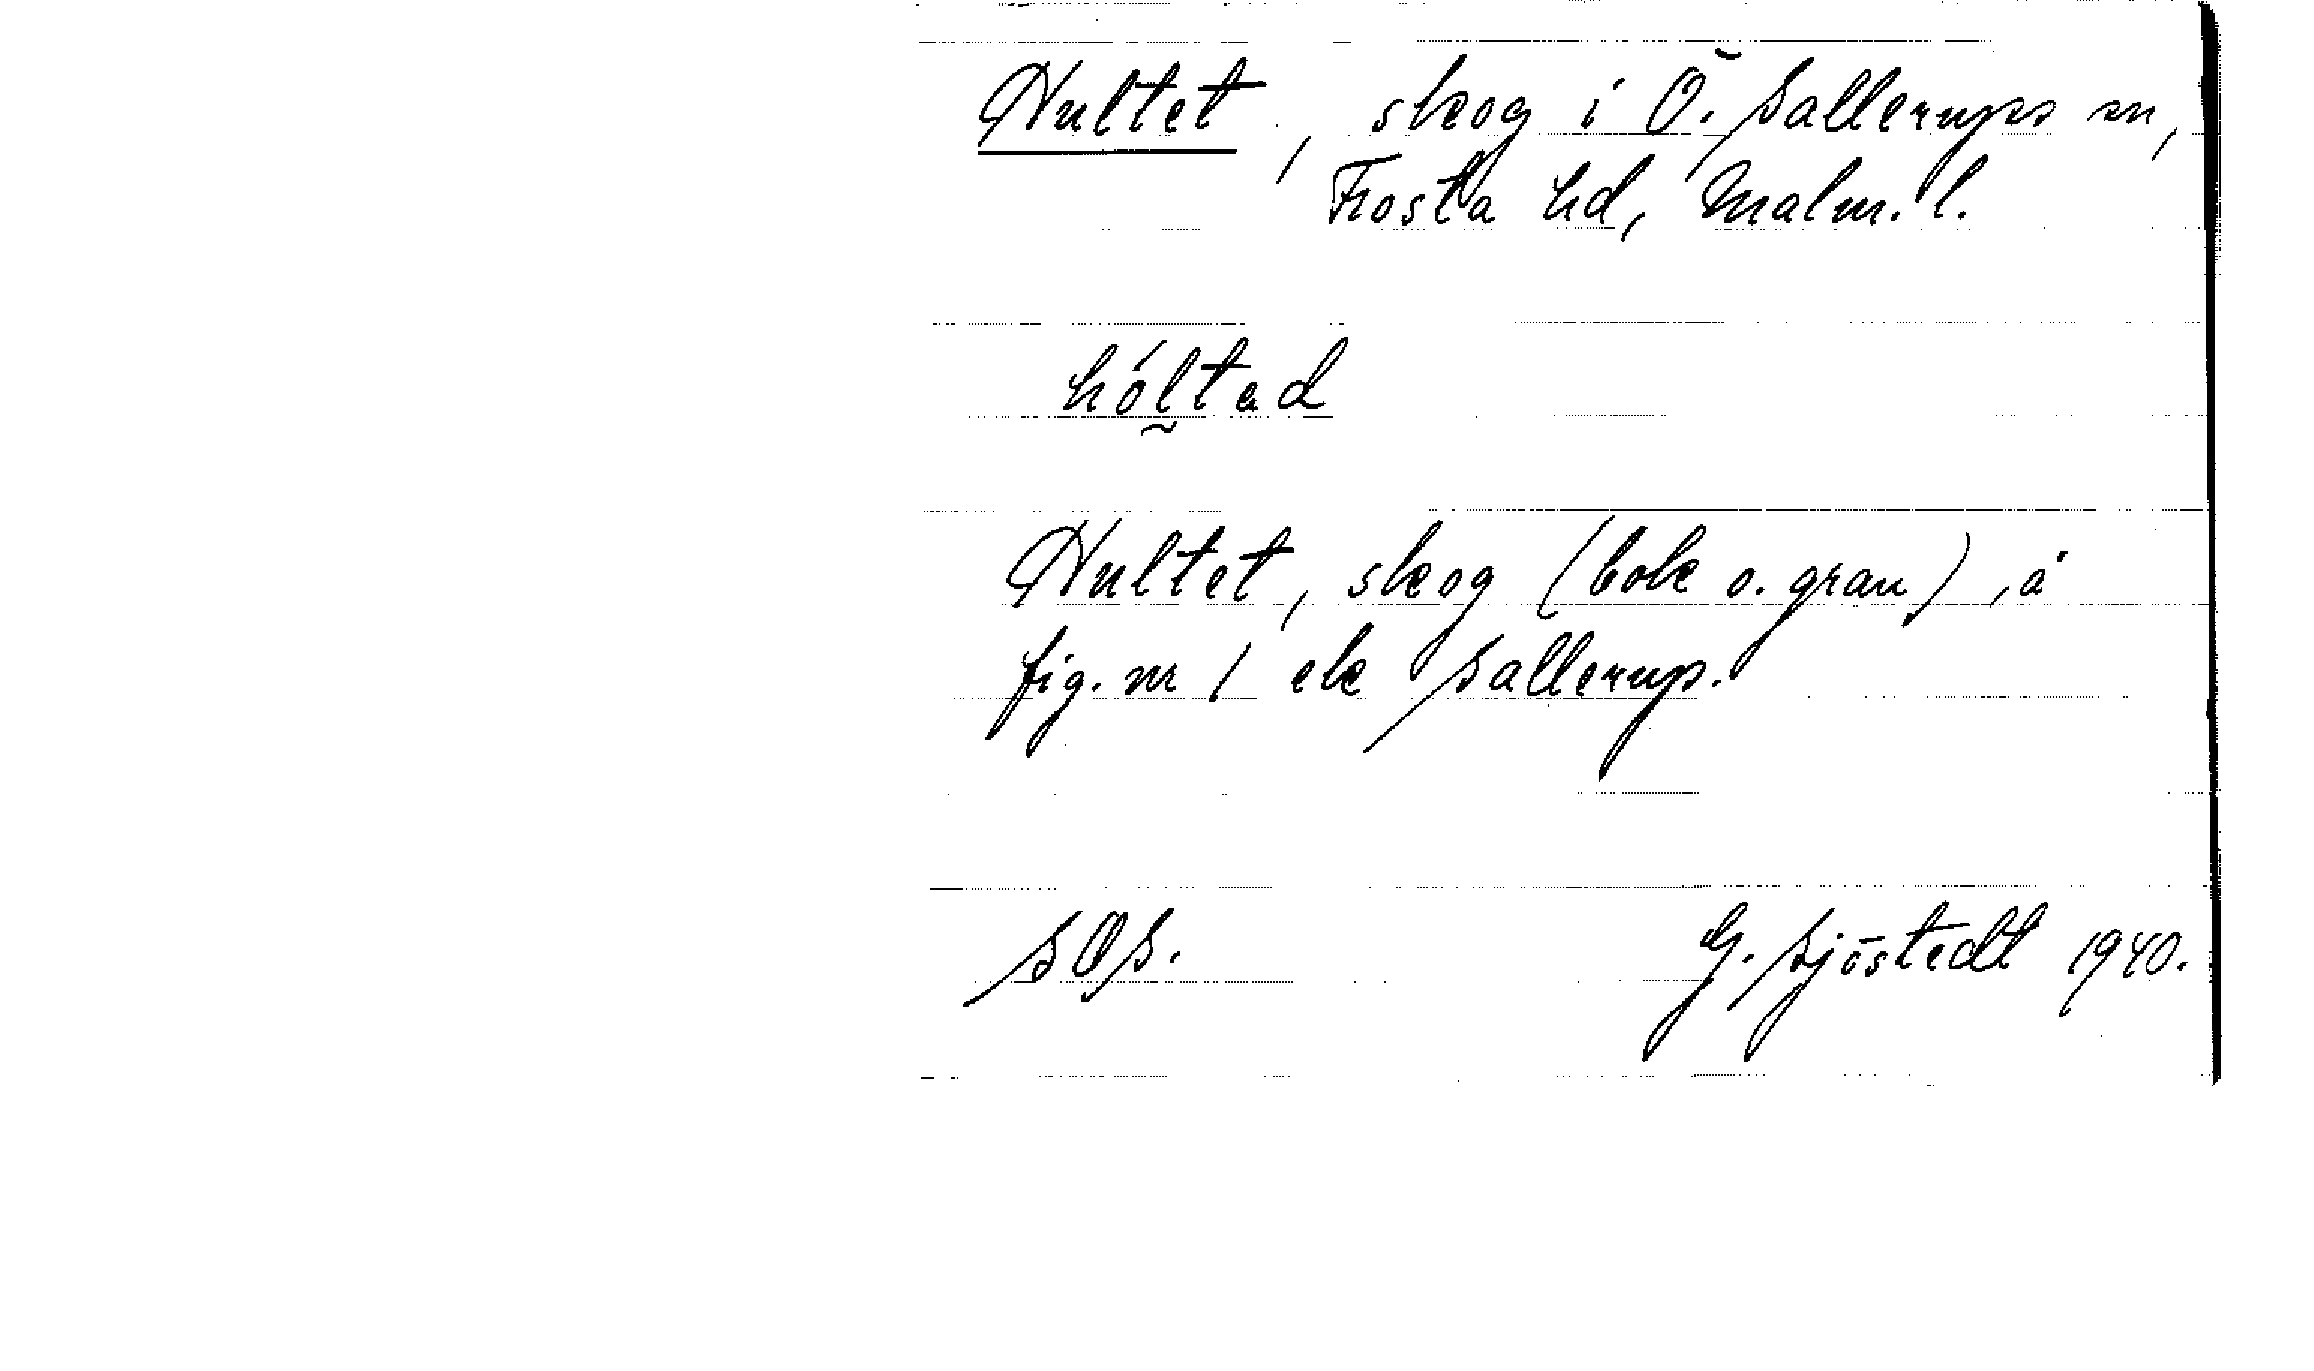 Hultet, skog i Ö. Sallerups sn,
Frosta hd, Malm. l.
hól̰tad
Hultet, skog (bok o. gran), å
fig. nr 1 ek Sallerup.
SOS.
G. Sjöstedt 1940.